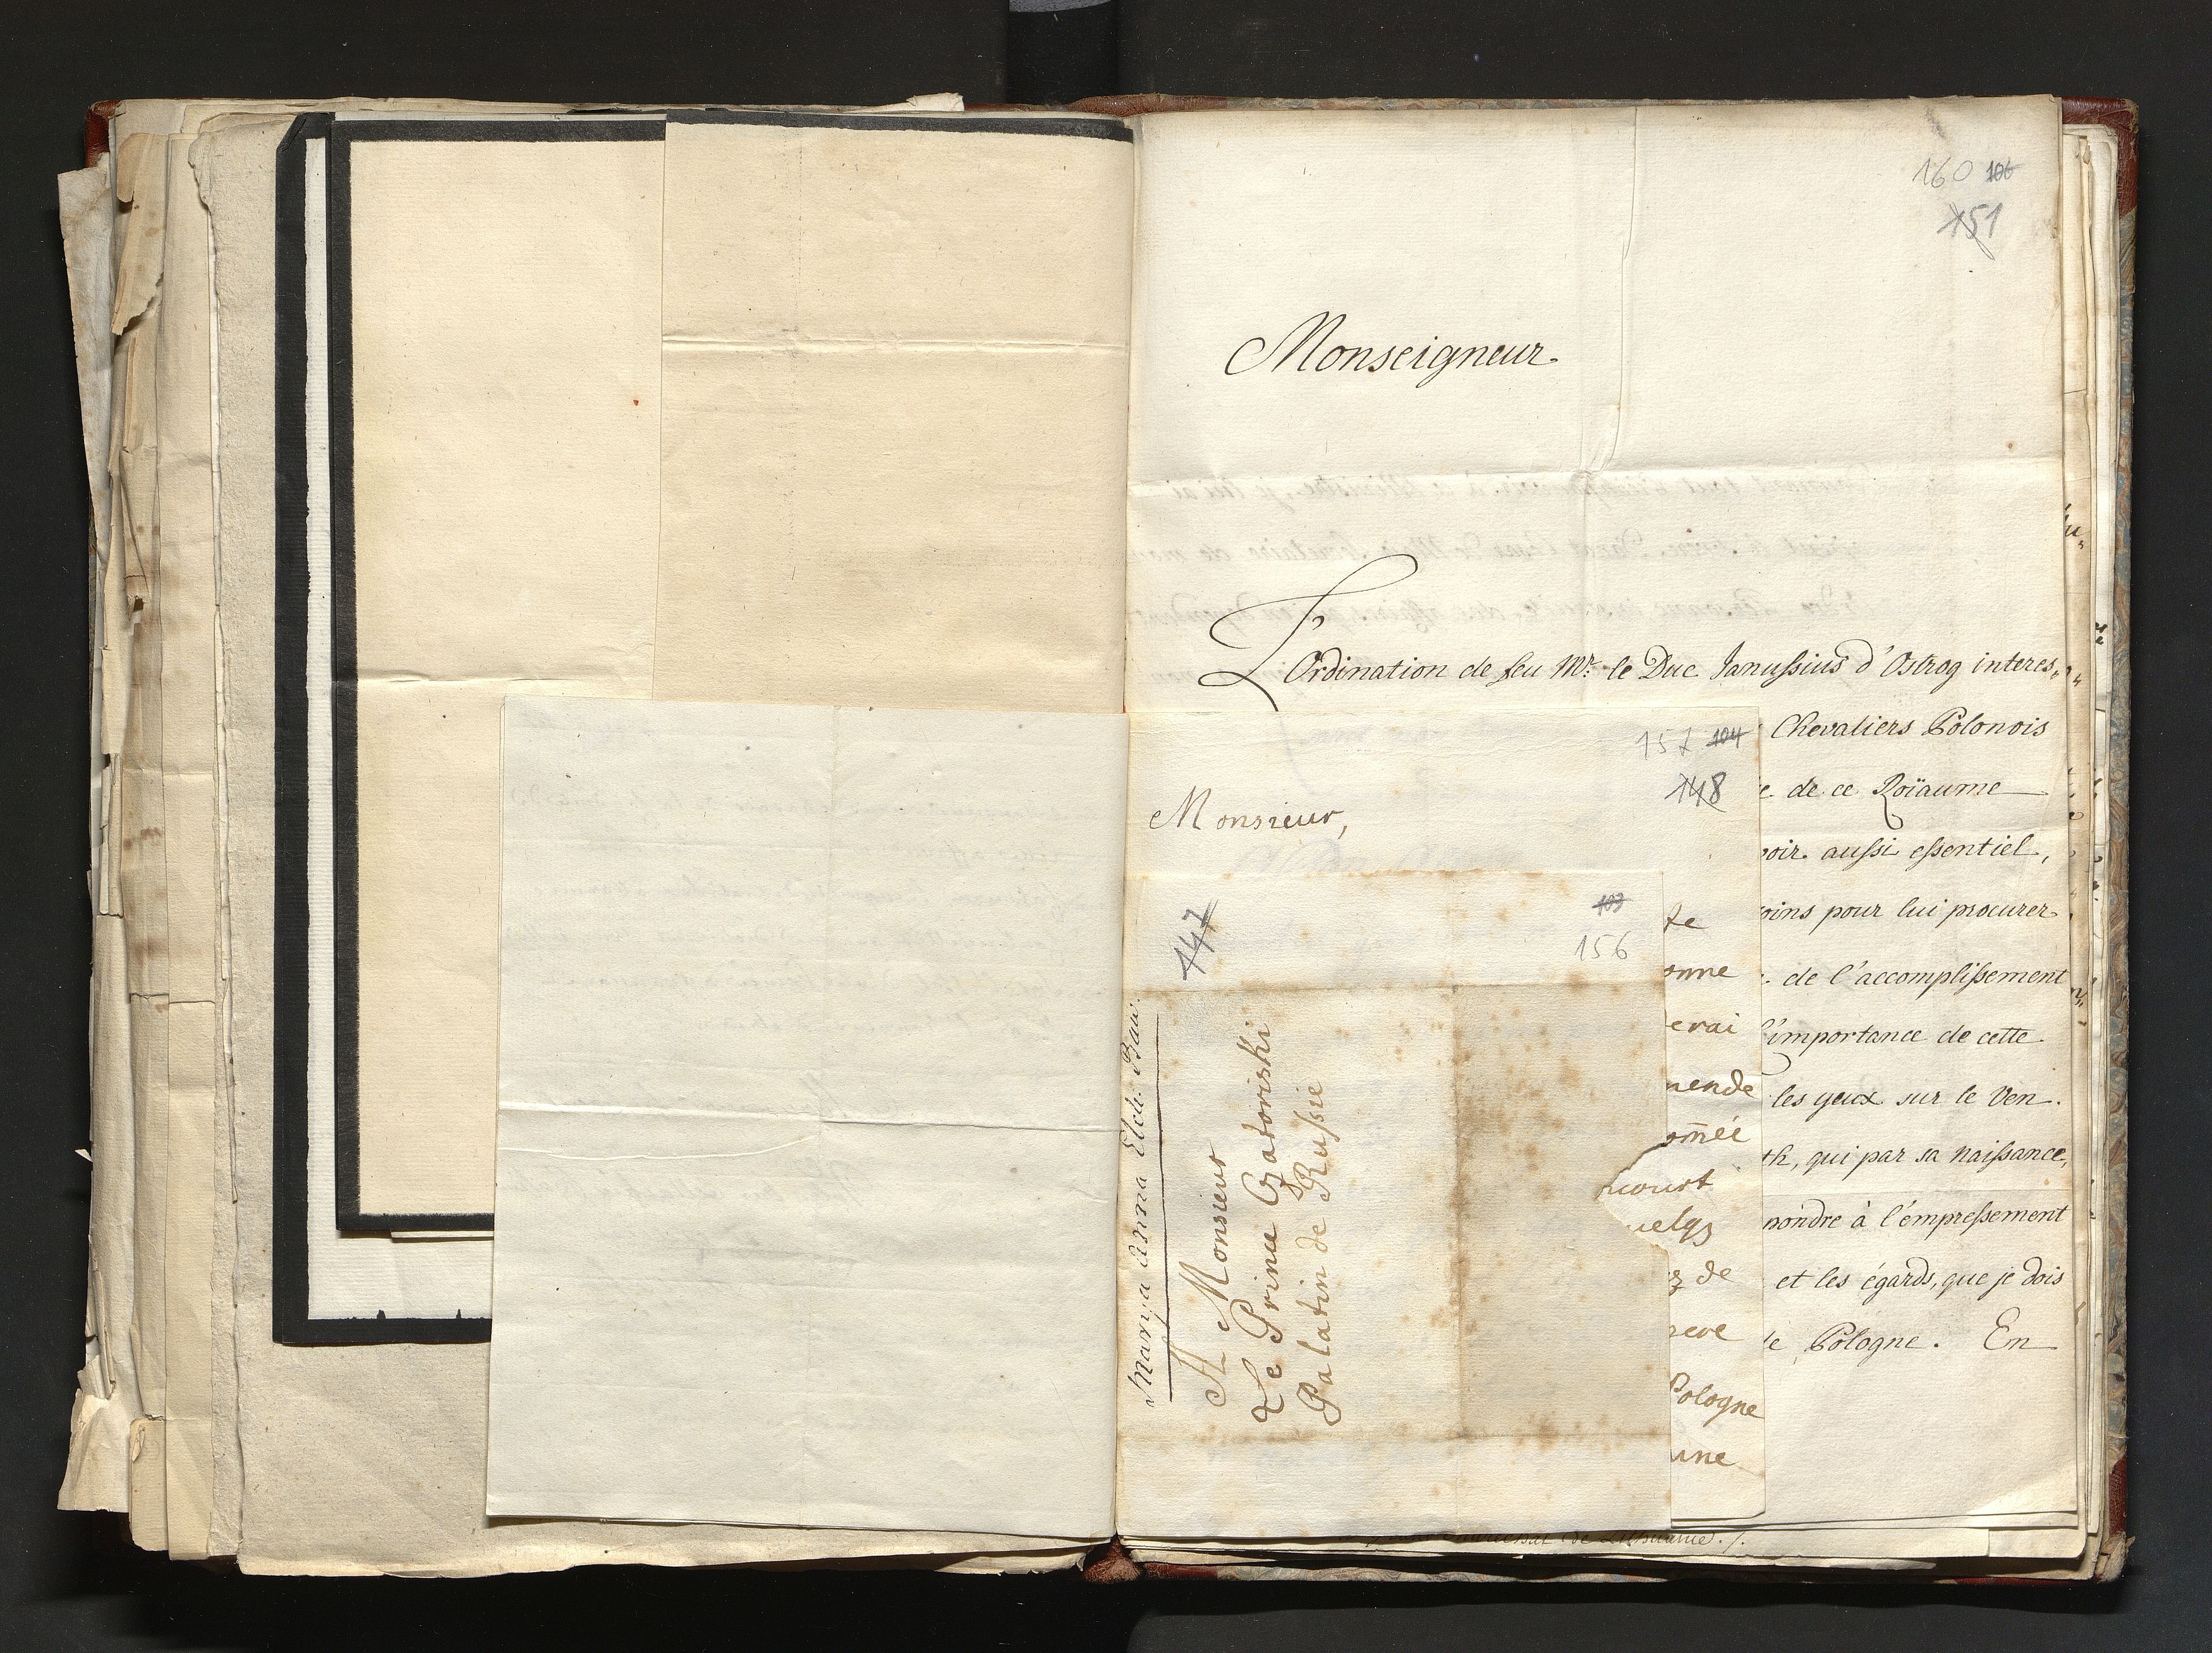 160 106
151
Monseigneur.
L'Ordination de feu Mr. le Duc Janussius d'Ostrog interes„
Chevaliers Polonois
de ce Roïaume
voir aussi essentiel,
oins pour lui procurer
de l'accomplissement
l'importance de cette
les yeux sur le Ven.
th, qui par sa naissance,
pondre à l'empressement
et les égards, que je dois
de Pologne. En
157 104
148
Monsieur,
te
onne
erai
mende
om̄ée
court
uelqs
de
neve
Pologne
une
103
156
147
Marya Anna Elect: Bav:
A Monsieur
Le Prince Czatoriski
Palatin de Russie
de Lithuanie ./.